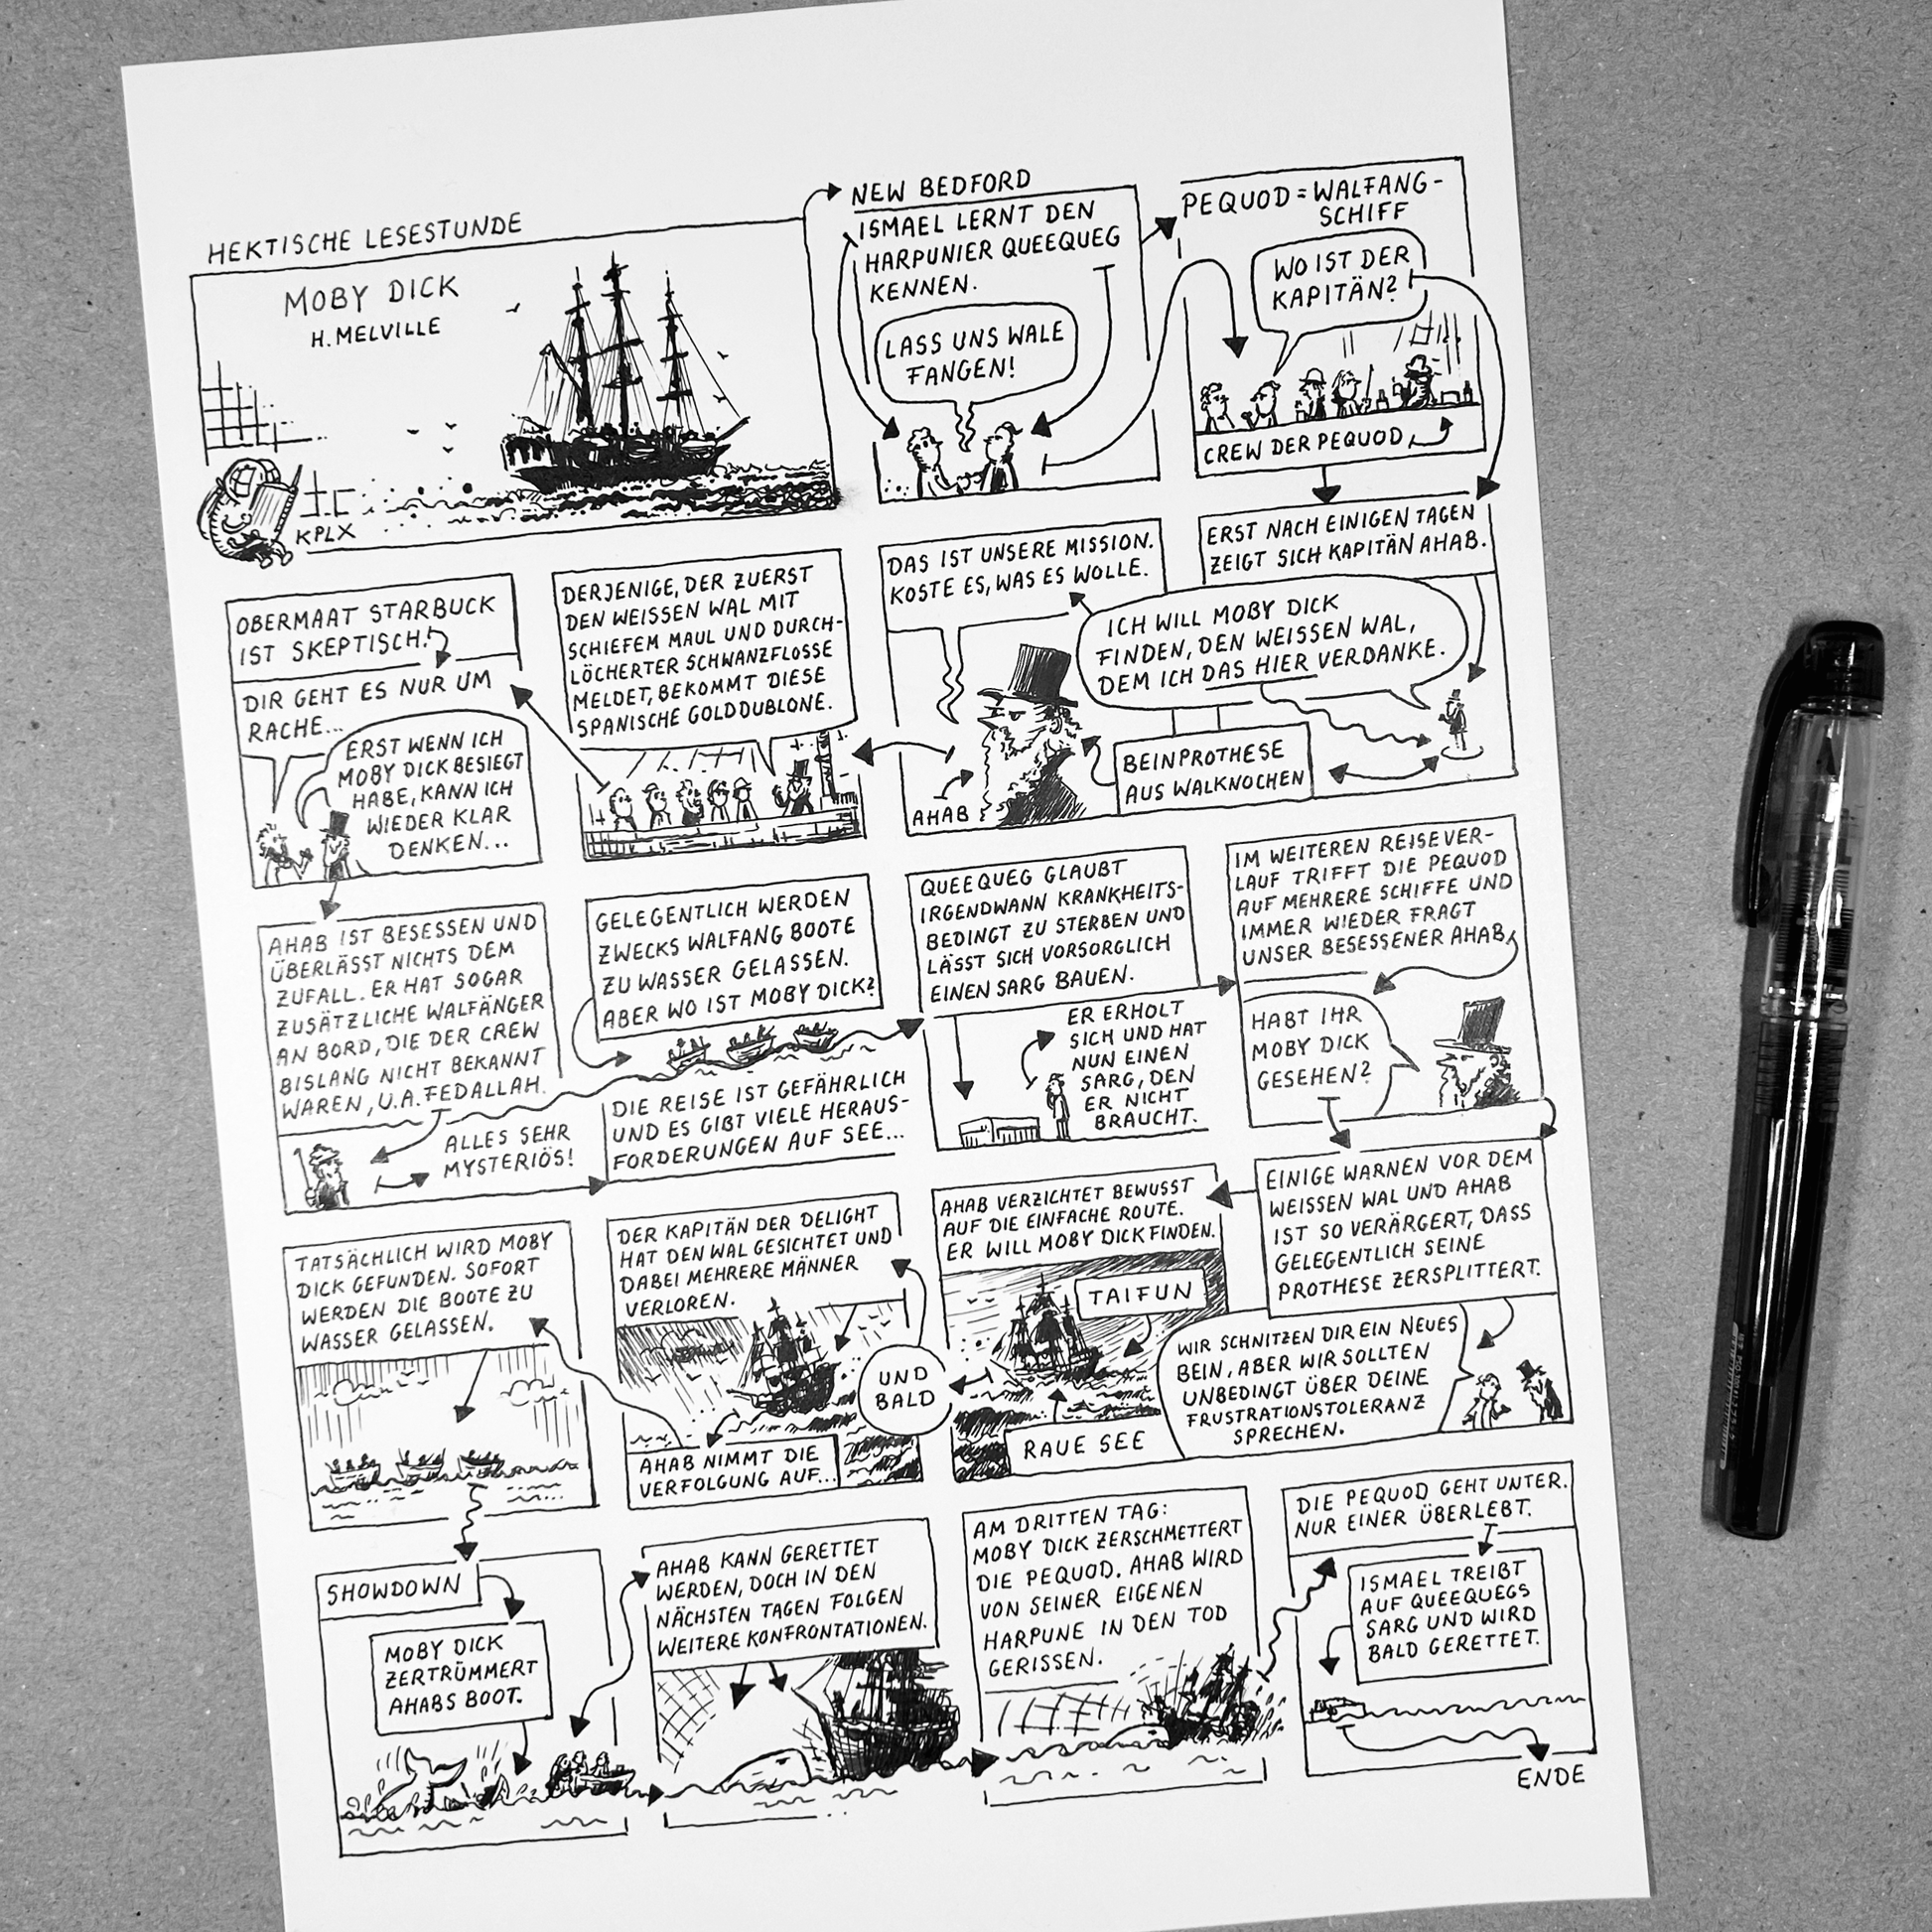 HEKTISCHE LESESTUNDE
MOBY DICK
H. MELVILLE
KPLX
NEW BEDFORD
ISMAEL LERNT DEN
HARPUNIER QUEEQUEG
KENNEN.
LASS UNS WALE
FANGEN!
PEQUOD = WALFANG-
SCHIFF
WO IST DER
KAPITÄN?
CREW DER PEQUOD
ERST NACH EINIGEN TAGEN
ZEIGT SICH KAPITÄN AHAB.
ICH WILL MOBY DICK
FINDEN, DEN WEISSEN WAL,
DEM ICH DAS HIER VERDANKE.
BEINPROTHESE
AUS WALKNOCHEN
DAS IST UNSERE MISSION.
KOSTE ES, WAS ES WOLLE.
AHAB
DERJENIGE, DER ZUERST
DEN WEISSEN WAL MIT
SCHIEFEM MAUL UND DURCH-
LÖCHERTER SCHWANZFLOSSE
MELDET, BEKOMMT DIESE
SPANISCHE GOLDDUBLONE.
OBERMAAT STARBUCK
IST SKEPTISCH!
DIR GEHT ES NUR UM
RACHE...
ERST WENN ICH
MOBY DICK BESIEGT
HABE, KANN ICH
WIEDER KLAR
DENKEN...
AHAB IST BESESSEN UND
ÜBERLÄSST NICHTS DEM
ZUFALL. ER HAT SOGAR
ZUSÄTZLICHE WALFÄNGER
AN BORD, DIE DER CREW
BISLANG NICHT BEKANNT
WAREN, U.A. FEDALLAH.
ALLES SEHR
MYSTERIÖS!
GELEGENTLICH WERDEN
ZWECKS WALFANG BOOTE
ZU WASSER GELASSEN.
ABER WO IST MOBY DICK?
DIE REISE IST GEFÄHRLICH
UND ES GIBT VIELE HERAUS-
FORDERUNGEN AUF SEE...
QUEEQUEG GLAUBT
IRGENDWANN KRANKHEITS-
BEDINGT ZU STERBEN UND
LÄSST SICH VORSORGLICH
EINEN SARG BAUEN.
ER ERHOLT
SICH UND HAT
NUN EINEN
SARG, DEN
ER NICHT
BRAUCHT.
IM WEITEREN REISEVER-
LAUF TRIFFT DIE PEQUOD
AUF MEHRERE SCHIFFE UND
IMMER WIEDER FRAGT
UNSER BESESSENER AHAB
HABT IHR
MOBY DICK
GESEHEN?
EINIGE WARNEN VOR DEM
WEISSEN WAL UND AHAB
IST SO VERÄRGERT, DASS
GELEGENTLICH SEINE
PROTHESE ZERSPLITTERT.
WIR SCHNITZEN DIR EIN NEUES
BEIN, ABER WIR SOLLTEN
UNBEDINGT ÜBER DEINE
FRUSTRATIONSTOLERANZ
SPRECHEN.
AHAB VERZICHTET BEWUSST
AUF DIE EINFACHE ROUTE.
ER WILL MOBY DICK FINDEN.
TAIFUN
RAUE SEE
UND
BALD
DER KAPITÄN DER DELIGHT
HAT DEN WAL GESICHTET UND
DABEI MEHRERE MÄNNER
VERLOREN.
AHAB NIMMT DIE
VERFOLGUNG AUF...
TATSÄCHLICH WIRD MOBY
DICK GEFUNDEN. SOFORT
WERDEN DIE BOOTE ZU
WASSER GELASSEN.
SHOWDOWN
MOBY DICK
ZERTRÜMMERT
AHABS BOOT.
AHAB KANN GERETTET
WERDEN, DOCH IN DEN
NÄCHSTEN TAGEN FOLGEN
WEITERE KONFRONTATIONEN.
AM DRITTEN TAG:
MOBY DICK ZERSCHMETTERT
DIE PEQUOD. AHAB WIRD
VON SEINER EIGENEN
HARPUNE IN DEN TOD
GERISSEN.
DIE PEQUOD GEHT UNTER.
NUR EINER ÜBERLEBT.
ISMAEL TREIBT
AUF QUEEQUEGS
SARG UND WIRD
BALD GERETTET.
ENDE